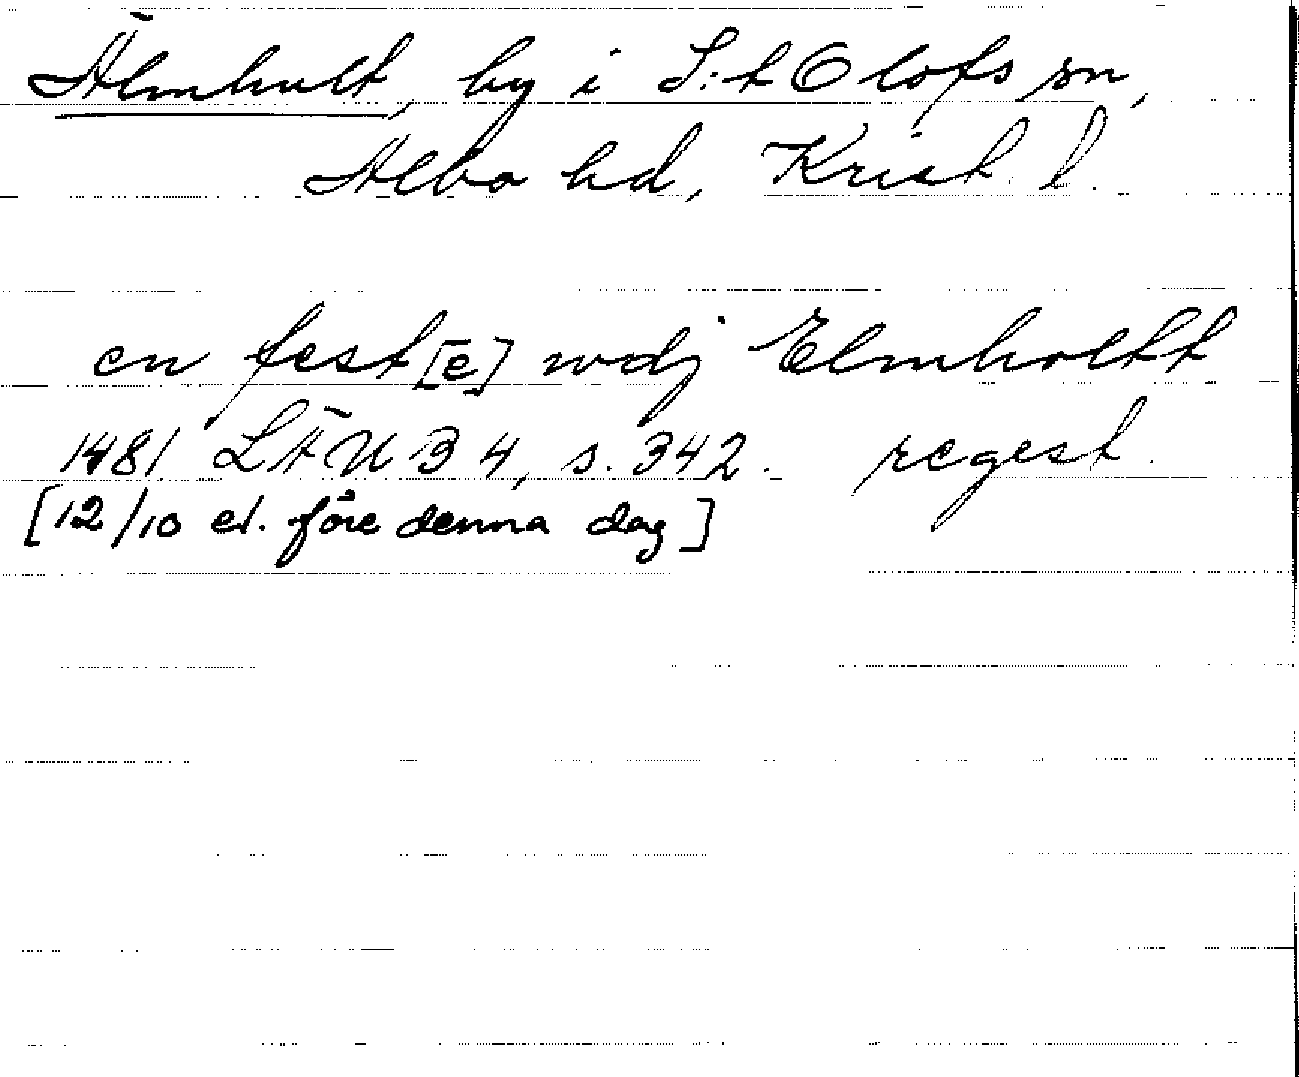 Älmhult, by i S:t Olofs sn,
Albo hd, Krist. l.
en fest[e] wdj Elmholtt
1481 LÄUB 4, s. 342. regest.
[12/10 el. före denna dag]